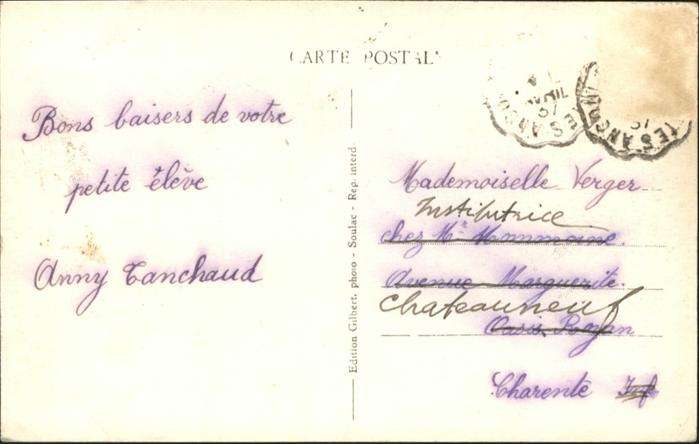 CARTE POSTAL
AVRIL
51
51
Bons baisers de votre
petite élève
Anny Tanchaud
Edition Gilbert, photo - Soulac - Rep. interd
Mademoiselle Verger
Institutrice
chez Mr
Avenue Marguerite.
Chateauneuf
Oasis Royan
Charente Inf